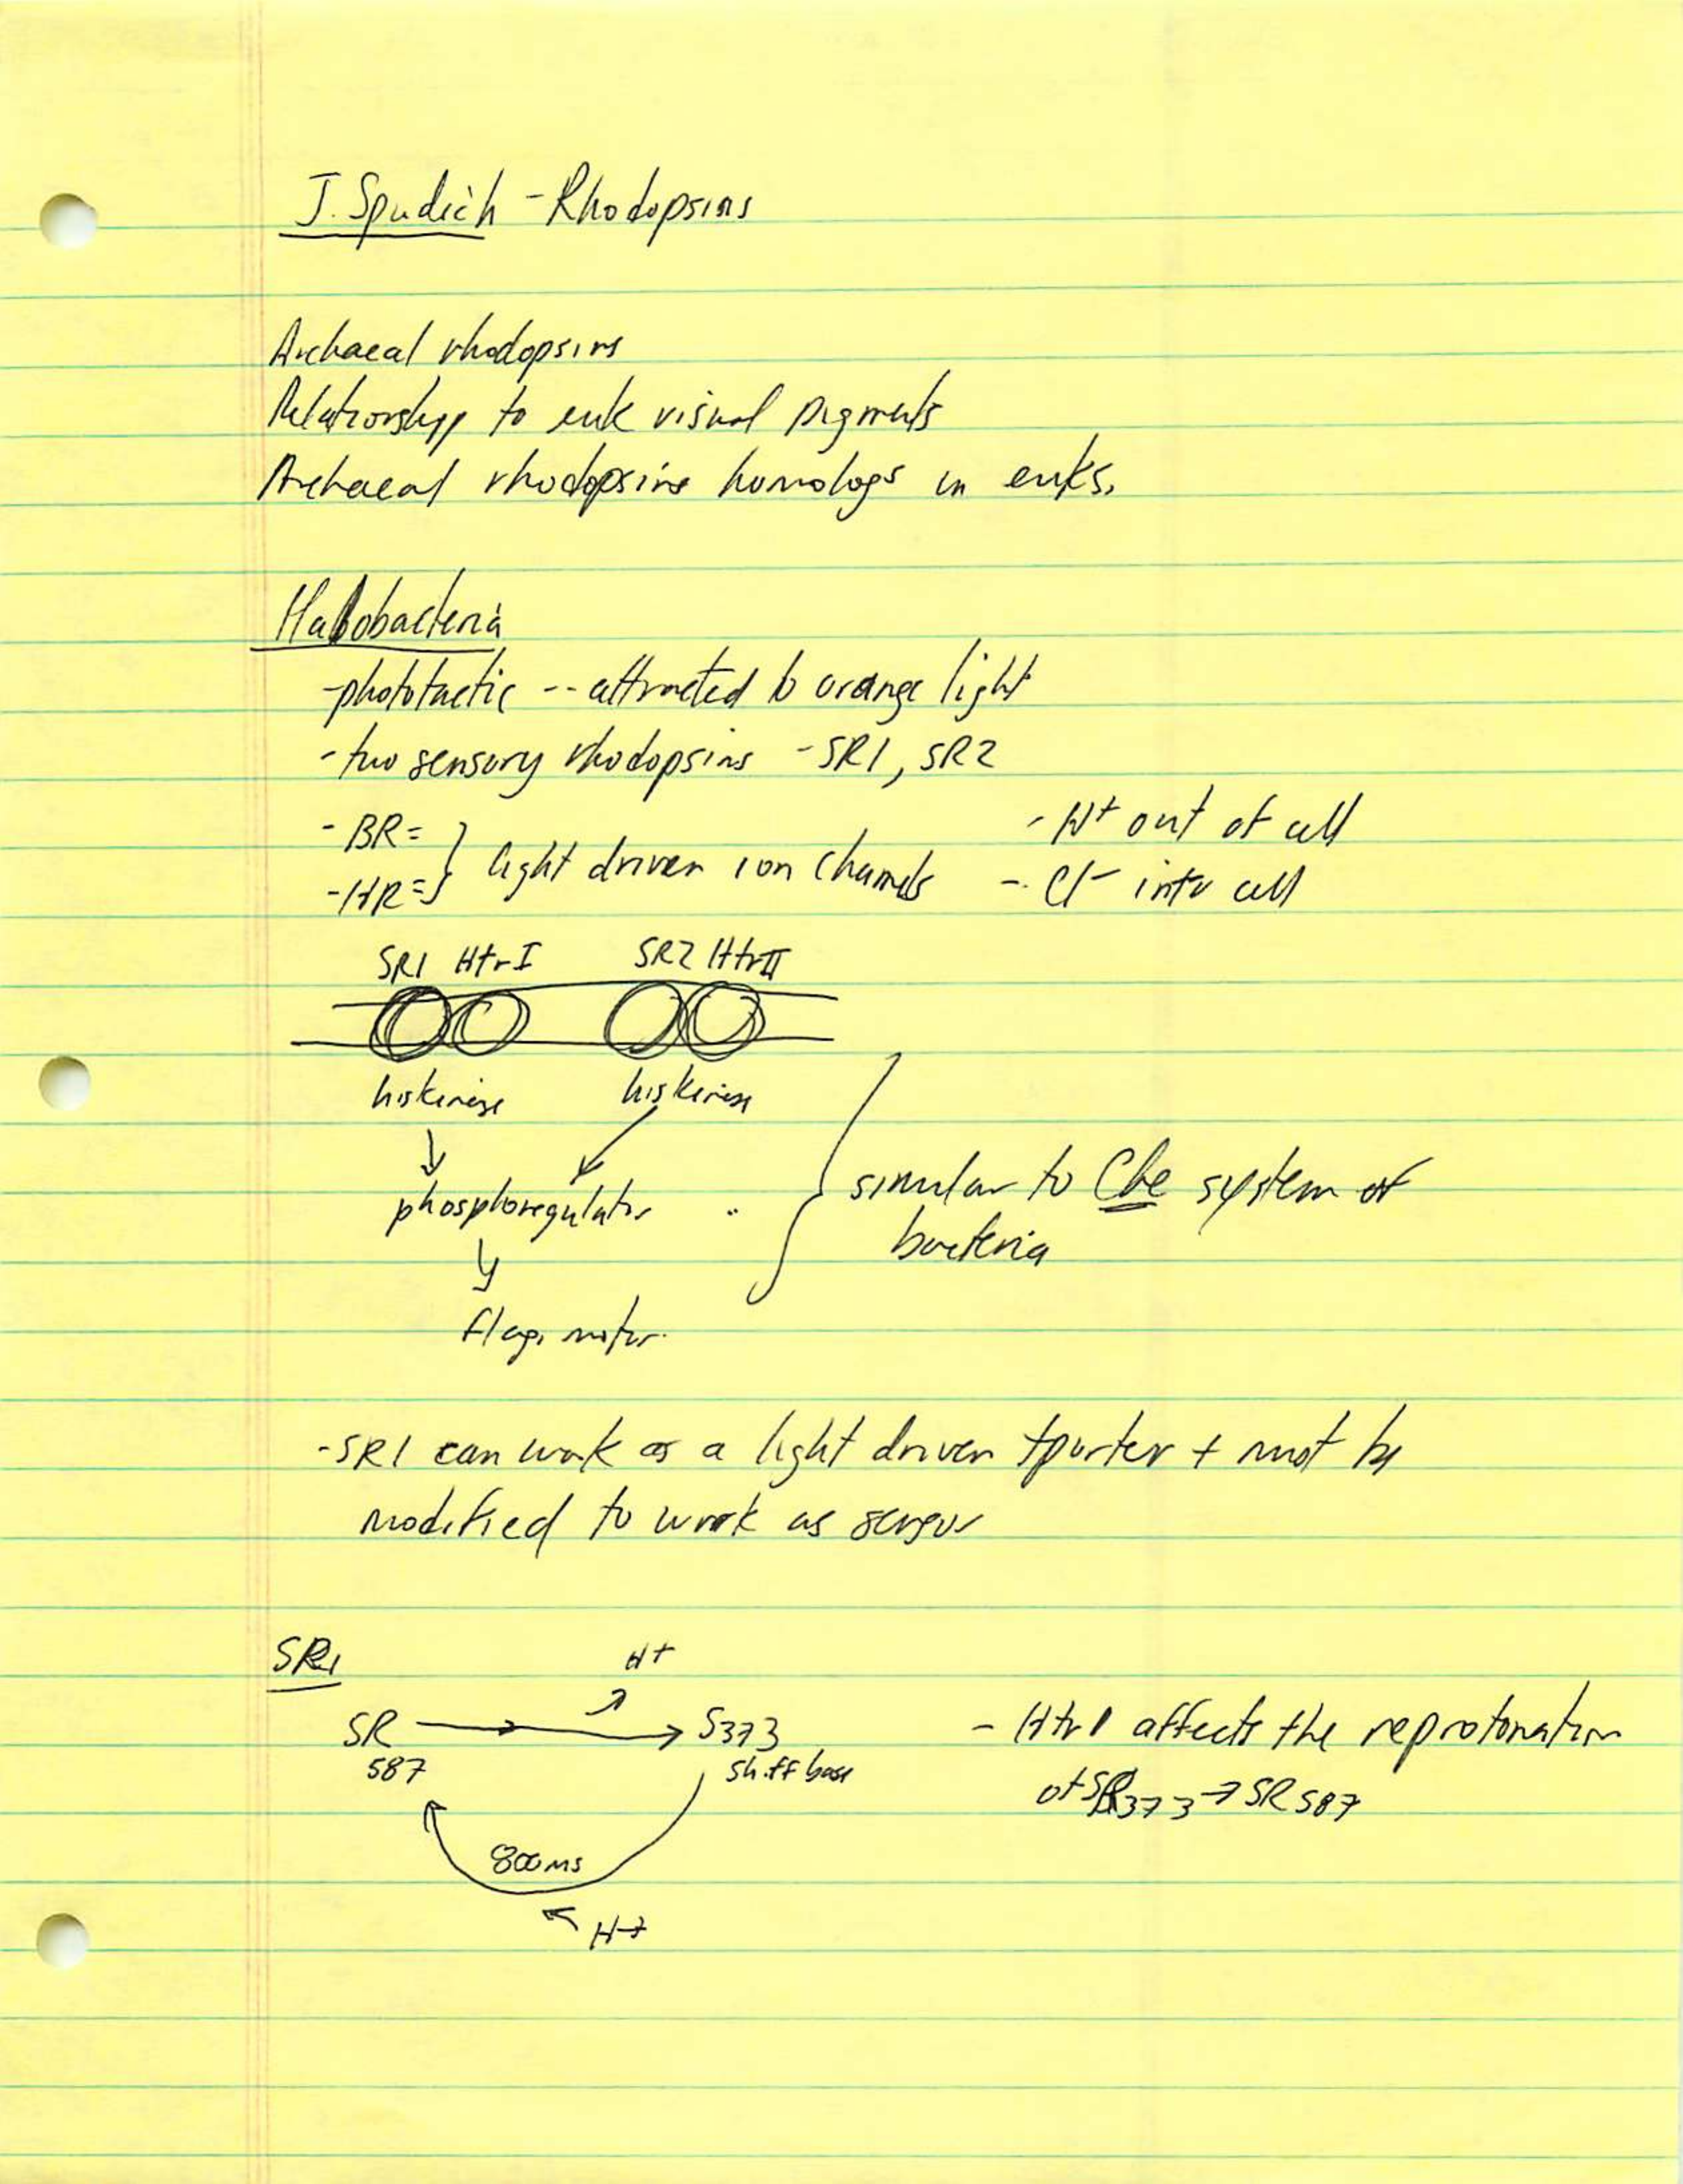 J. Spudich - Rhodopsins
Archaeal rhodopsins
Relationship to euk visual pigments
Archaeal rhodopsins homologs in euks.
Halobacteria
-phototactic -- attracted to orange light
- two sensory rhodopsins - SR1, SR2
- BR= } light driven ion channels - H+ out of cell
- HR= } - Cl- into cell
SR1 HtrI SR2 HtrII
hiskinase hiskinase
phosphoregulator
similar to Che system of
bacteria
flag. motor.
- SR1 can work as a light driven tporter + must be
modified to work as sensor
SR1
H+
SR → S373 - Htr1 affects the reprotonation
587 shiff base of SR373 → SR587
800ms
H+